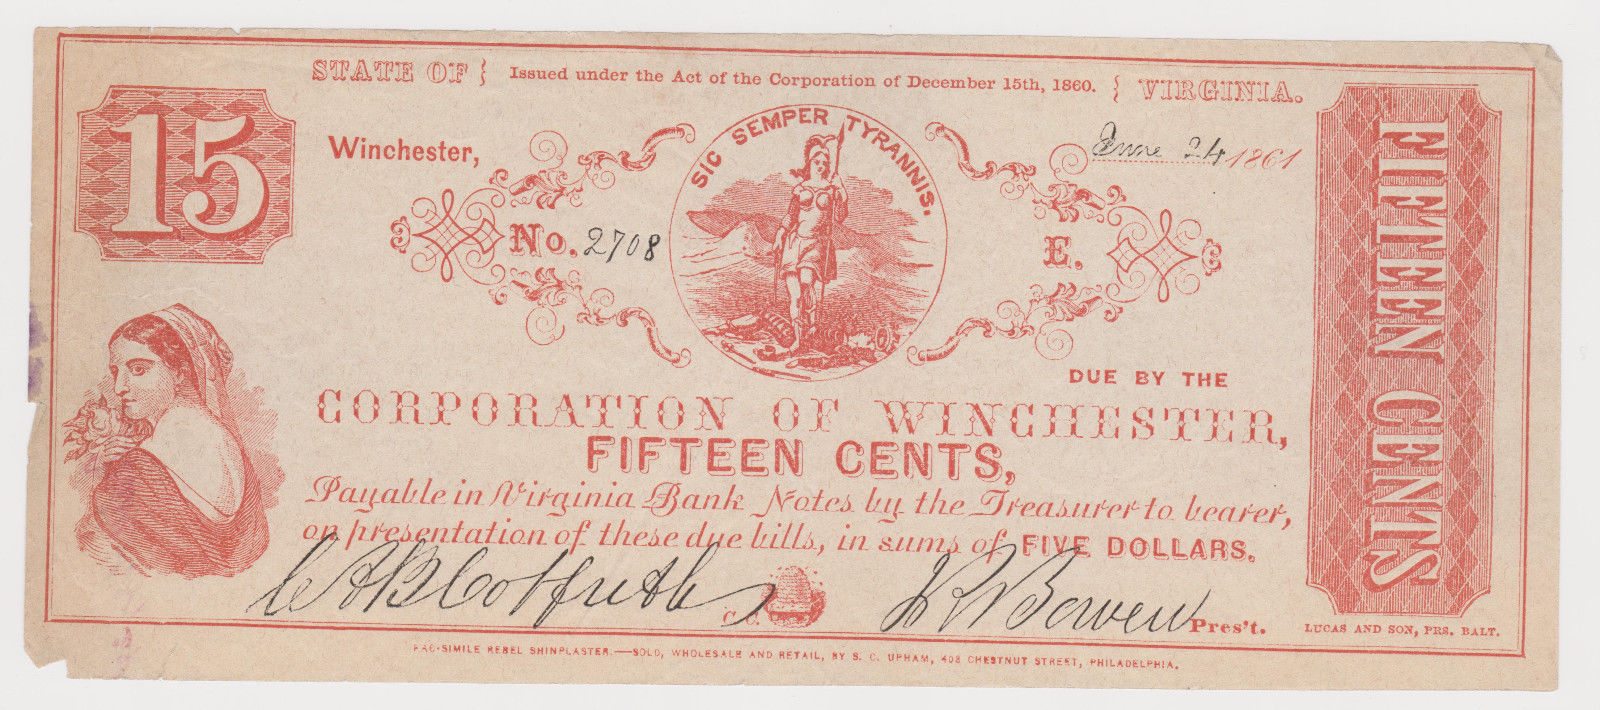 STATE OF { Issued under the Act of the Corporation of December 15th, 1860. } VIRGINIA.
15
Winchester,
SIC SEMPER TYRANNIS.
June 24 1861
No. 2708
E.
FIFTEEN CENTS
DUE BY THE
CORPORATION OF WINCHESTER,
FIFTEEN CENTS,
Payable in Virginia Bank Notes by the Treasurer to bearer,
on presentation of these due bills, in sums of FIVE DOLLARS.
C. C.
J R Bowen Pres't.
LUCAS AND SON, PRS. BALT.
FAC-SIMILE REBEL SHINPLASTER.—SOLD, WHOLESALE AND RETAIL, BY S. C. UPHAM, 403 CHESTNUT STREET, PHILADELPHIA.